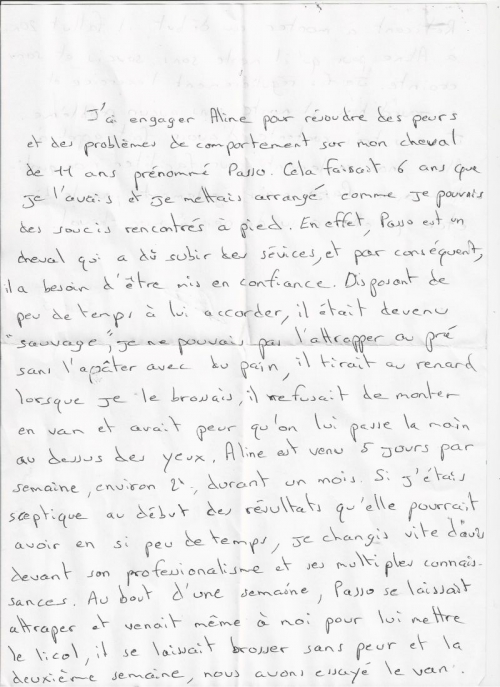 J'ai engager Aline pour résoudre des peurs
et des problèmes de comportement sur mon cheval
de 11 ans prénommé Passo. Cela faisait 6 ans que
je l'avais et je mettais arrangé comme je pouvais
des soucis rencontrés à pied. En effet, Passo est un
cheval qui a dû subir des sévices, et par conséquent,
il a besoin d'être mis en confiance. Disposant de
peu de temps à lui accorder, il était devenu
"sauvage", je ne pouvais pas l'attrapper au pré
sans l'apâter avec du pain, il tirait au renard
lorsque je le brossais, il refusait de monter
en van et avait peur qu'on lui passe la main
au dessus des yeux. Aline est venu 5 jours par
semaine, environ 2h, durant un mois. Si j'étais
sceptique au début des résultats qu'elle pourrait
avoir en si peu de temps, je changis vite d'avis
devant son professionalisme et ses multiples connais-
sances. Au bout d'une semaine, Passo se laissait
attraper et venait même à moi pour lui mettre
le licol, il se laissait brosser sans peur et la
deuxième semaine, nous avons essayé le van.